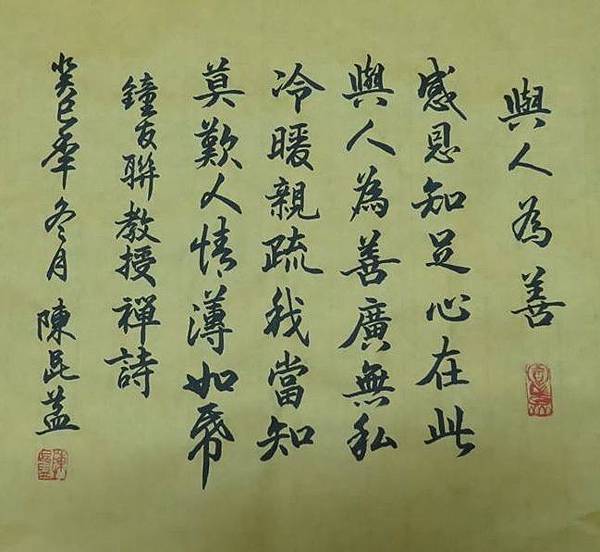 與人為善
感恩知足心在此
與人為善廣無私
冷暖親疏我當知
莫歎人情薄如帋
鐘友聯教授禪詩
癸巳年冬月 陳昆益